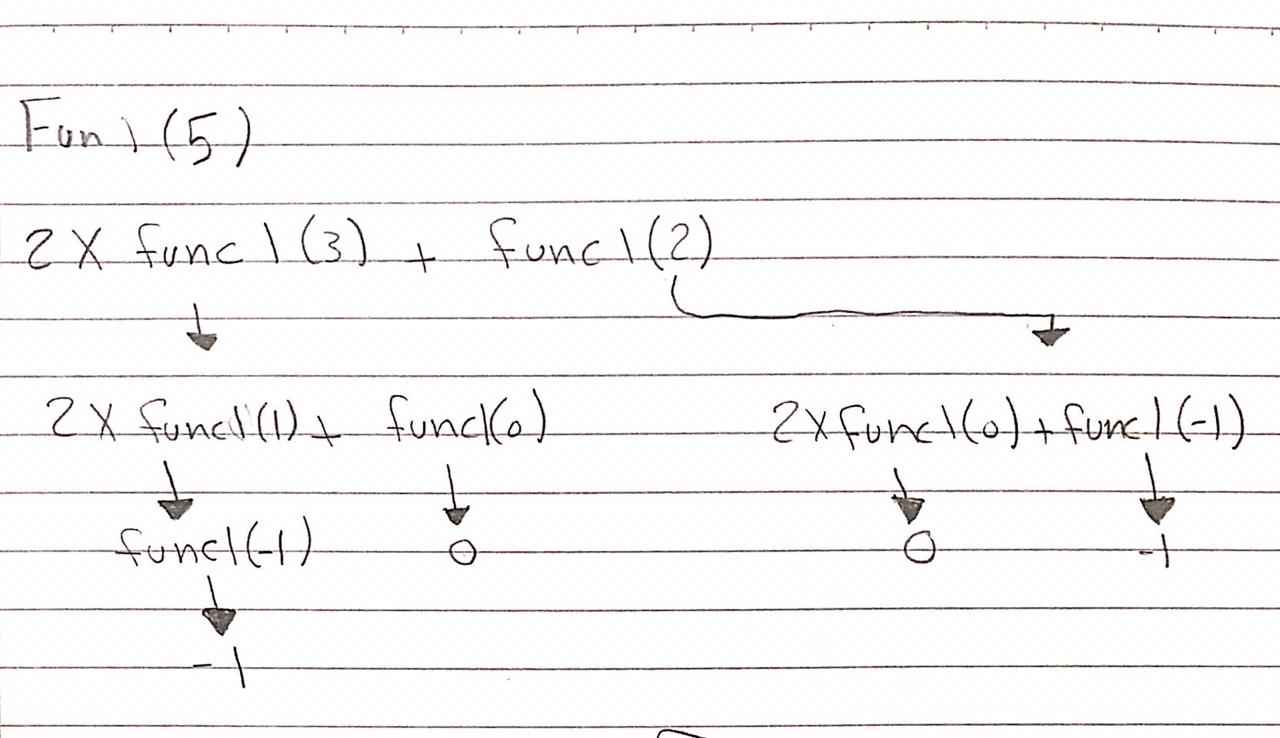 Fun1(5)
2 X func1(3) + func1(2)
2 X func1(1) + func1(0) 2 X func1(0) + func1(-1)
func1(-1) 0 0 -1
-1